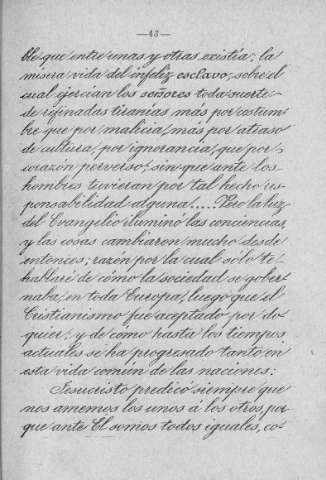 —43—
ble que entre unas y otras existía; la
mísera vida del infeliz esclavo, sobre el
cual ejercían los señores toda suerte
de refinadas tiranías más por costum
bre que por malicia, más por atraso
de cultura, por ignorancia, que por
corazón perverso, sin que ante los
hombres tuvieran por tal hecho res-
ponsabilidad alguna!.... Pero la luz
del Evangelio iluminó las conciencias,
y las cosas cambiaron mucho desde
entonces; razón por la cual sólo te
hablaré de cómo la sociedad se gober
naba, en toda Europa, luego que el
Cristianismo fue aceptado por do-
quier; y de cómo hasta los tiempos
actuales se ha progresado tanto en
esta vida común de las naciones:
Jesucristo predicó siempre que
nos amemos los unos á los otros, por
que ante El somos todos iguales, co-